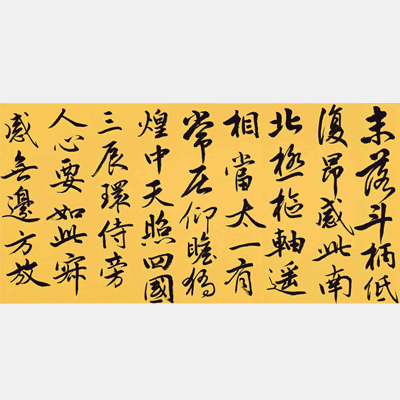 未落斗柄低
復昂感此南
北極樞軸遥
相當太一有
常居仰瞻獨
煌中天照四國
三辰環侍旁
人心要如此寂
感無邊方放